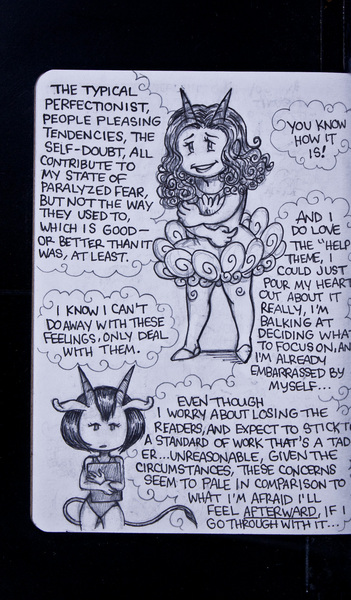 THE TYPICAL
PERFECTIONIST,
PEOPLE PLEASING
TENDENCIES, THE
SELF-DOUBT, ALL
CONTRIBUTE TO
MY STATE OF
PARALYZED FEAR,
BUT NOT THE WAY
THEY USED TO,
WHICH IS GOOD—
OR BETTER THAN IT
WAS, AT LEAST.
YOU KNOW
HOW IT
IS!
AND I
DO LOVE
THE "HELP"
THEME, I
COULD JUST
POUR MY HEART
OUT ABOUT IT
REALLY, I'M
BALKING AT
DECIDING WHAT
TO FOCUS ON, AND
I'M ALREADY
EMBARRASSED BY
MYSELF...
I KNOW I CAN'T
DO AWAY WITH THESE
FEELINGS, ONLY DEAL
WITH THEM.
EVEN THOUGH
I WORRY ABOUT LOSING THE
READERS, AND EXPECT TO STICK TO
A STANDARD OF WORK THAT'S A TAD
ER...UNREASONABLE, GIVEN THE
CIRCUMSTANCES, THESE CONCERNS
SEEM TO PALE IN COMPARISON TO
WHAT I'M AFRAID I'LL
FEEL AFTERWARD, IF I
GO THROUGH WITH IT...